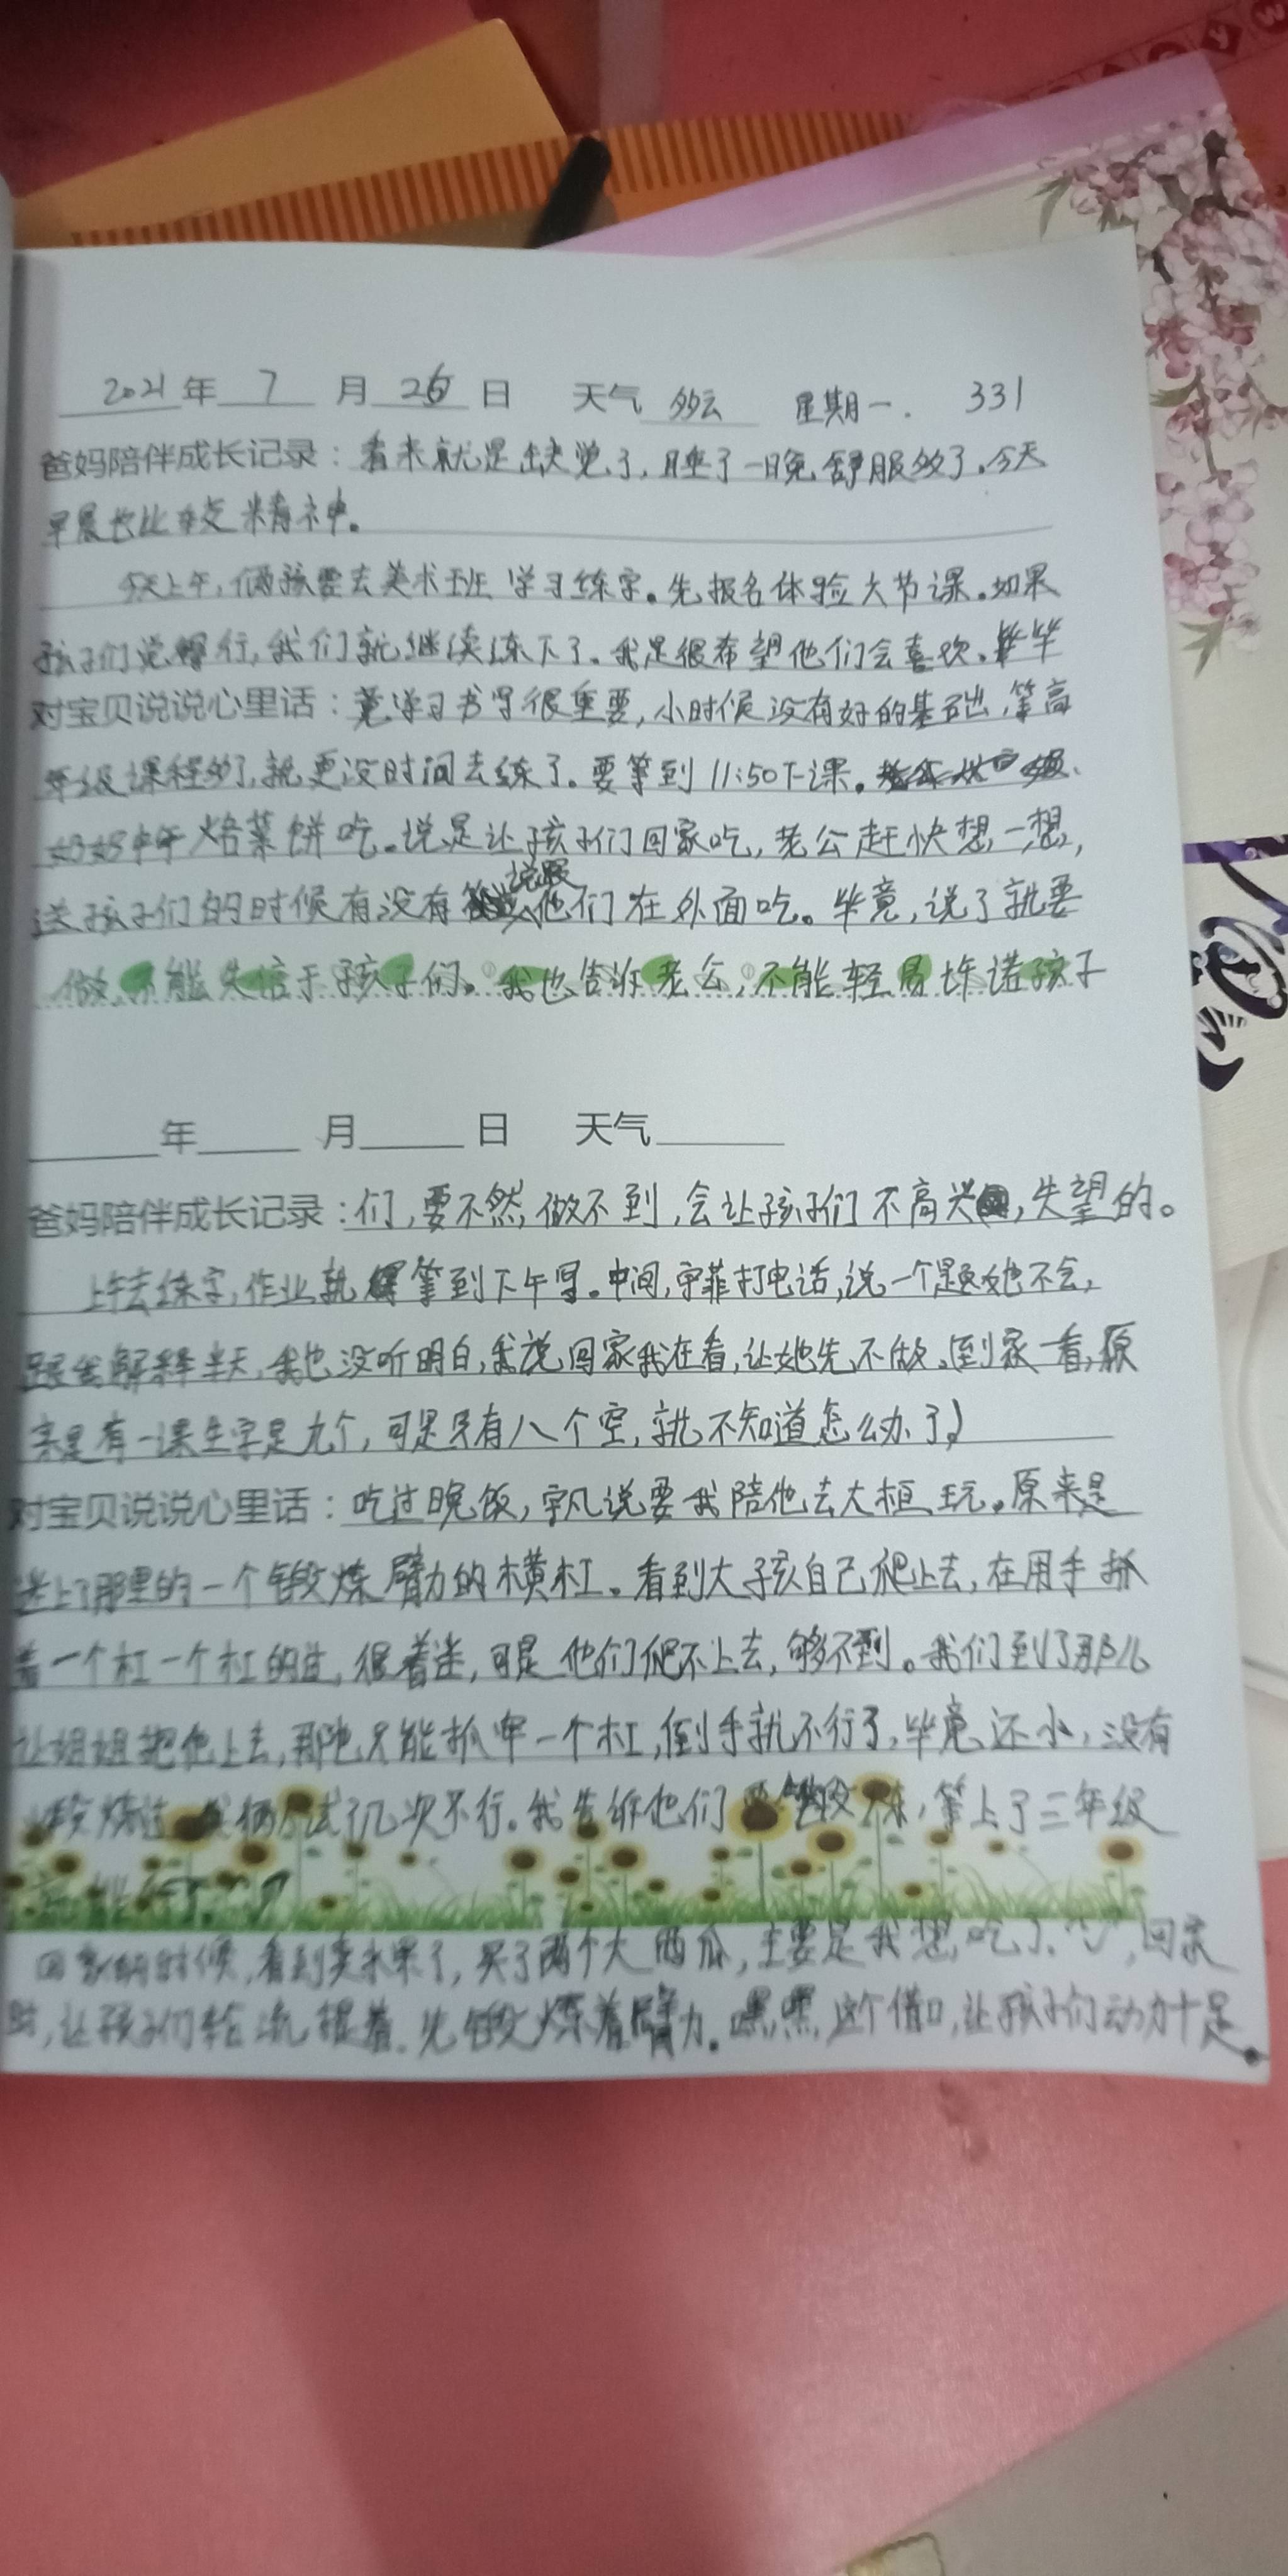 2021年 7 月 26 日 天气 多云 星期一. 331
爸妈陪伴成长记录：看来就是缺觉了，睡了一晚舒服多了。今天
早晨也比较精神。
今天上午，俩孩要去美术班学习练字。先报名体验六节课。如果
孩子们说行，我们就继续练下了。我是很希望他们会喜欢。毕
对宝贝说说心里话：竟学习书写很重要，小时候没有好的基础，等高
年级课程多了，就更没时间去练了。要等到11:50下课。
奶奶中午烙菜饼吃。说是让孩子们回家吃，老公赶快想一想，
送孩子们的时候有没有说跟他们在外面吃。毕竟，说了就要
做，不能失信于孩子们。我也告诉老公，不能轻易许诺孩子
年 月 日 天气
爸妈陪伴成长记录：们，要不然，做不到，会让孩子们不高兴，失望的。
上午去练字，作业就等到下午写。中间，宇菲打电话，说一个题她不会，
跟我解释半天，我也没听明白，我说回家我在看，让她先不做。到家一看，原
来是有一课生字是九个，可是只有八个空，就不知道怎么办了
对宝贝说说心里话：吃过晚饭，宇凡说要我陪他去大桓玩。原来是
迷上了那里的一个锻炼臂力的横杠。看到大孩自己爬上去，在用手抓
着一个杠一个杠的过，很着迷，可是他们爬不上去，够不到。我们到了那儿
让姐姐把他上去，那也只能抓牢一个杠，倒手就不行了，毕竟还小，没有
锻炼过 试了几次不行。我告诉他们要锻炼，等上了三年级
回家的时候，看到卖水果了，买了两个大西瓜，主要是我想吃了，回家
时，让孩子们轮流提着，先锻炼着臂力。嘿嘿，这个借口，让孩子们动力十足